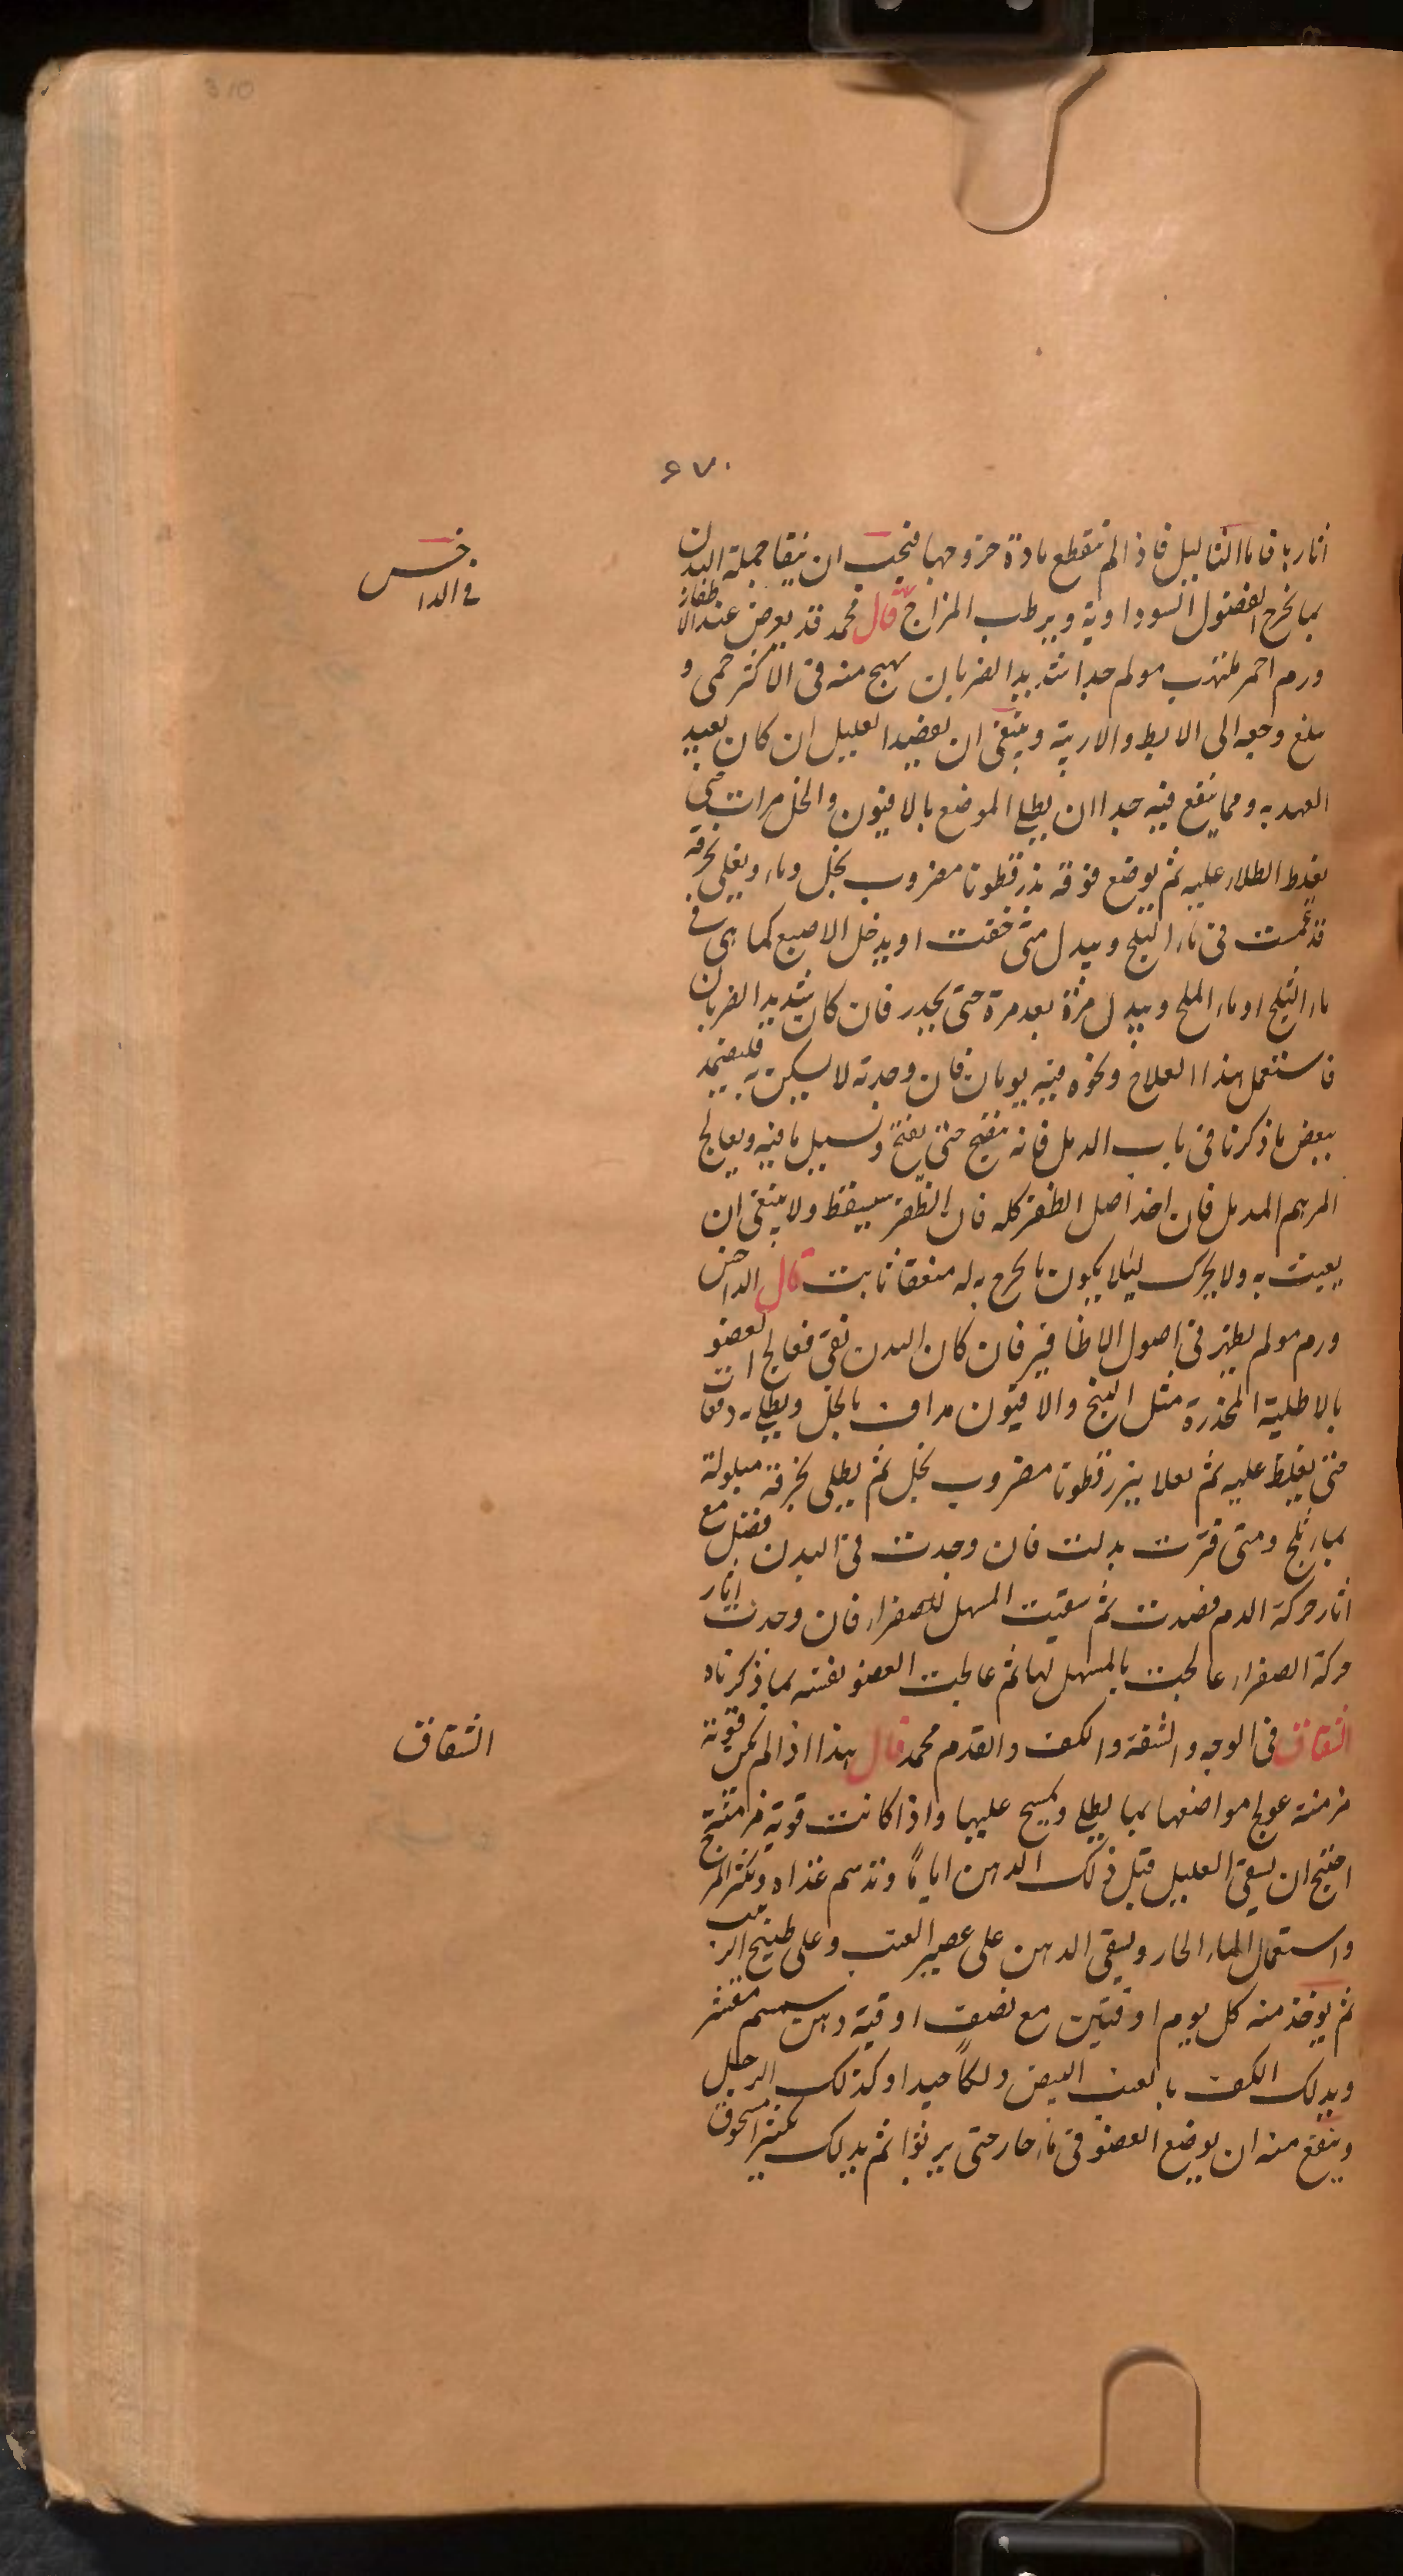 310
٤٧٠
اثار با فاما الثاليل فاذا لم تنقطع مادة خروجها فيجب ان ينقا جملة البدن
في الداخس
بما يخرج الفضول السوداوية ويرطب المزاج قال محمد قد يعرض عند الاظفار
ورم احمر ملتهب مولم جدا شديد الضربان يهيج منه في الاكثر حمى و
يبلغ وجعه الى الابط والاربية وينبغى ان يفصد العليل ان كان بعيد
العهد به ومما ينفع فيه جدا ان يطلى الموضع بالافيون والخل مرات حتى
يغلظ الطلاء عليه ثم يوضع فوقه بذرقطونا مضروب بخل وماء ويغلى بخرقة
قد غمست فى ماء الثلج ويبدل متى خفت او يدخل الاصبع كما هى فى
ماء الثلج او ماء الملح ويبدل مرة بعد مرة حتى يخدر فان كان شديد الضربان
فاستعمل هذا العلاج ونحوه فيه يومان فان وجدته لا يسكن فليضمد
ببعض ما ذكرنا فى باب الدمل فانه ينضج حتى يفتح ويسيل ما فيه ويعالج
المرهم المدمل فان اخذ اصل الظفر كله فان الظفر سيسقط ولا ينبغى ان
يعبث به ولا يحرك ليلا يكون ما يخرج به له منعقفا ثابت قال الداخس
ورم مولم يظهر فى اصول الاظافير فان كان البدن نقى فعالج العضو
بالاطلية المخدرة مثل البنج والافيون مداف بالخل ويطلى به دفعات
حتى يغلظ عليه ثم يعلا ببزرقطونا مضروب بخل ثم يطلى بخرقة مبلولة
بماء ثلج ومتى فترت بدلت فان وجدت فى البدن فضل مع
اثار حركة الدم فصدت ثم سقيت المسهل للصفراء فان وجدت اثار
حركة الصفراء عالجت بالمسهل لها ثم عالجت العضو نفسه بما ذكرناه
الشقاق
الشقاق فى الوجه والشفة والكف والقدم محمد قال هذا اذا لم يكن قوية
مزمنة عولج مواضعها بما يطلى ويمسح عليها واذا كانت قوية مزمنة
احتيج ان يسقى العليل قبل ذلك الدهن اياما وتدسم غذاه ويكثر المرخ
واستعمال الماء الحار ويسقى الدهن على عصير العنب وعلى طبيخ الزبيب
ثم يوخذ منه كل يوم اوقيتين مع نصف اوقية دهن سمسم مقشر
ويدلك الكف بالعنب البيض دلكا جيدا وكذلك الرجل
وينفع منه ان يوضع العضو فى ماء حار حتى يربوا ثم يدلك بكثيرا مسحوق